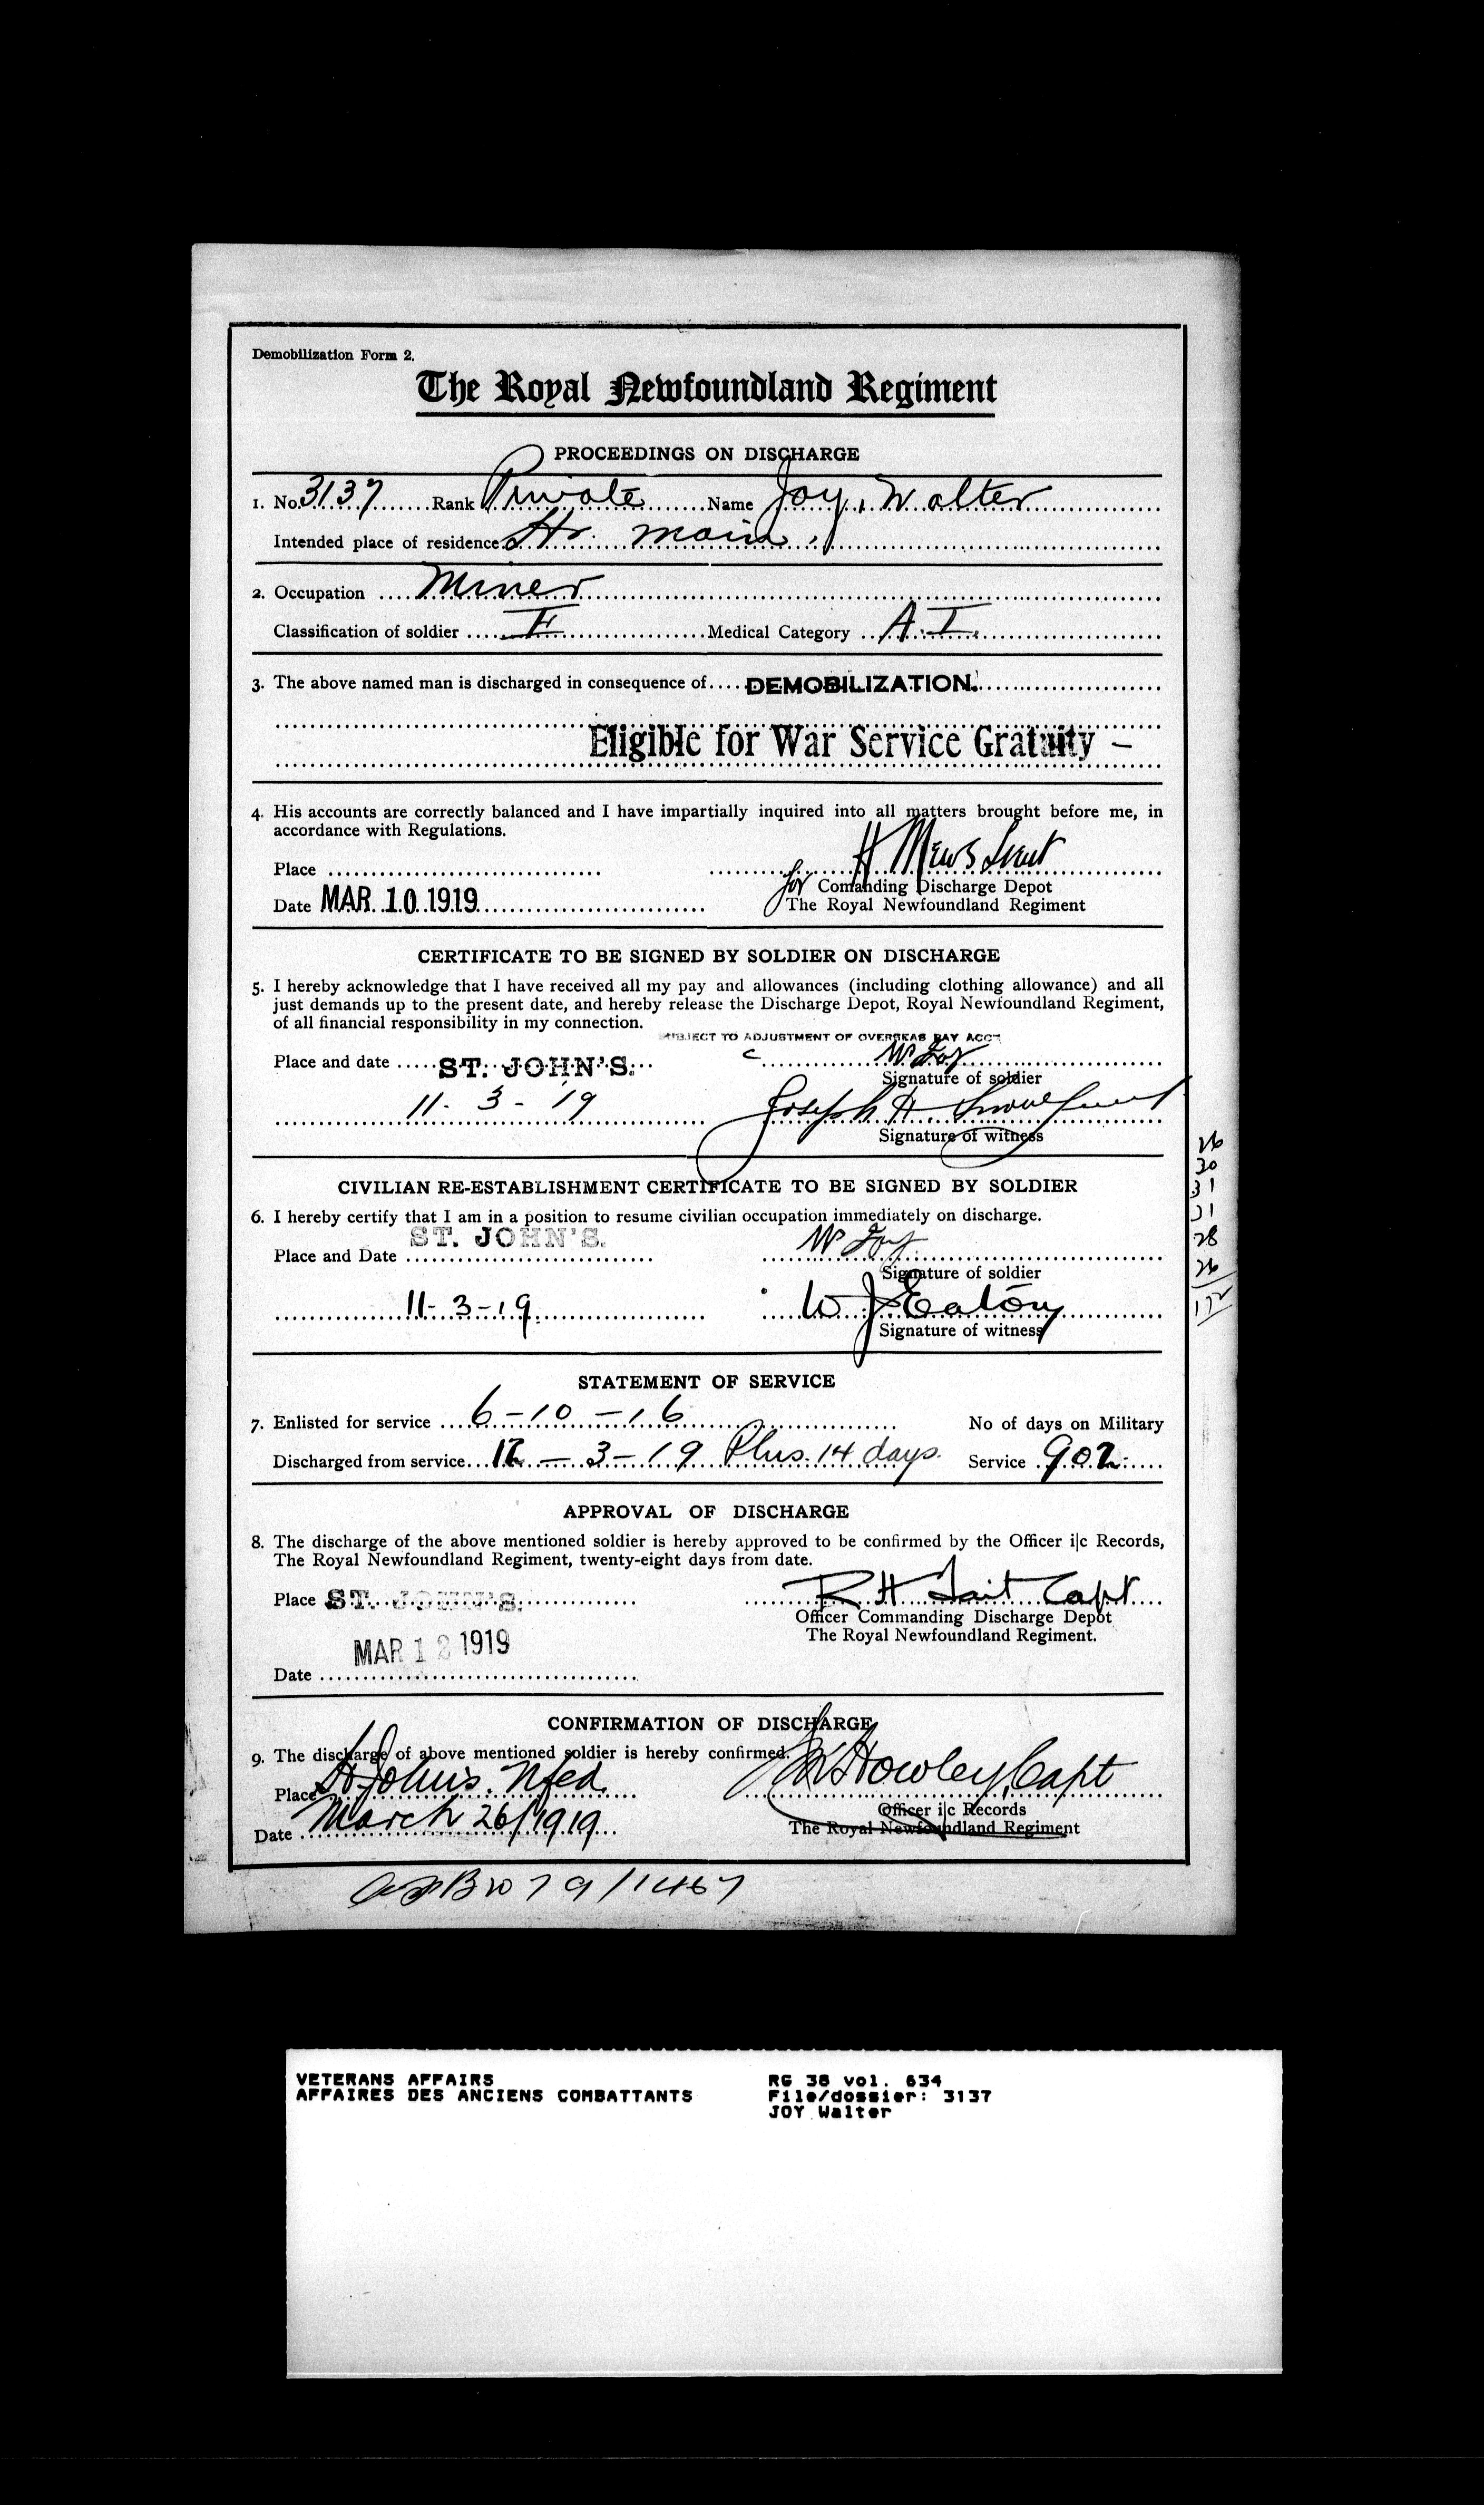 Demobilization Form 2.
The Royal Newfoundland Regiment
PROCEEDINGS ON DISCHARGE
1. No. 3137 Rank Private Name Joy, Walter
Intended place of residence Hr. Main,
2. Occupation Miner
Classification of soldier Medical Category A.I.
3. The above named man is discharged in consequence of DEMOBILIZATION.
Eligible for War Service Gratuity –
4. His accounts are correctly balanced and I have impartially inquired into all matters brought before me, in
accordance with Regulations.
H Mews Lieut
Place
for Comanding Discharge Depot
Date MAR 10 1919 The Royal Newfoundland Regiment
CERTIFICATE TO BE SIGNED BY SOLDIER ON DISCHARGE
5. I hereby acknowledge that I have received all my pay and allowances (including clothing allowance) and all
just demands up to the present date, and hereby release the Discharge Depot, Royal Newfoundland Regiment,
of all financial responsibility in my connection.
SUBJECT TO ADJUSTMENT OF OVERSEAS PAY ACCT
Place and date ST. JOHN'S. W Joy
Signature of soldier
11-3-'19 Joseph H.
Signature of witness
CIVILIAN RE-ESTABLISHMENT CERTIFICATE TO BE SIGNED BY SOLDIER
6. I hereby certify that I am in a position to resume civilian occupation immediately on discharge.
Place and Date ST. JOHN'S. W Joy
Signature of soldier
11-3-19 W J Eaton
Signature of witness
26
30
31
31
28
26
172
STATEMENT OF SERVICE
7. Enlisted for service 6-10-16 No of days on Military
Discharged from service 12-3-19 Plus 14 days. Service 902
APPROVAL OF DISCHARGE
8. The discharge of the above mentioned soldier is hereby approved to be confirmed by the Officer i|c Records,
The Royal Newfoundland Regiment, twenty-eight days from date.
Place ST. JOHN'S. R H Tait Capt
Officer Commanding Discharge Depot
The Royal Newfoundland Regiment.
MAR 12 1919
Date
CONFIRMATION OF DISCHARGE
9. The discharge of above mentioned soldier is hereby confirmed.
Place St John's. Nfld. Howley, Capt
Officer i|c Records
Date March 26/1919 The Royal Newfoundland Regiment
79/1467
VETERANS AFFAIRS RG 38 vol. 634
AFFAIRES DES ANCIENS COMBATTANTS File/dossier: 3137
JOY Walter